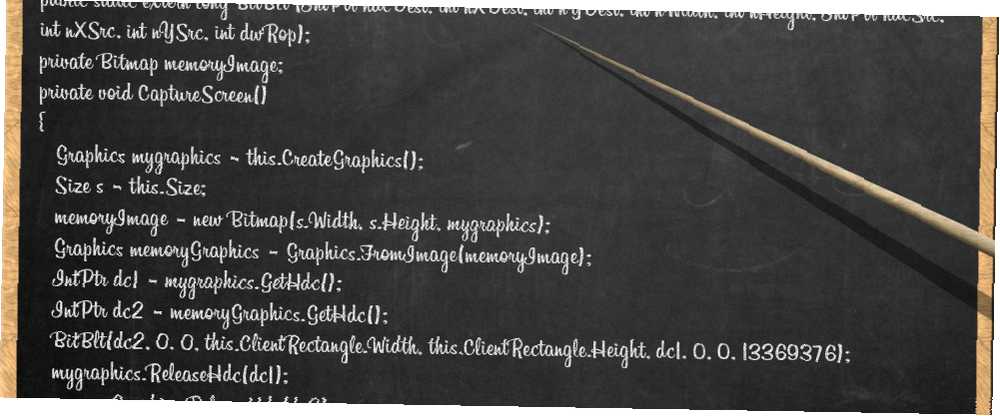 public static extern long BitBlt (IntPtr hdcDest, int nXDest, int nYDest, int nWidth, int nHeight, IntPtr hdcSrc,
int nXSrc, int nYSrc, int dwRop);
private Bitmap memoryImage;
private void CaptureScreen()
{
Graphics mygraphics = this.CreateGraphics();
Size s = this.Size;
memoryImage = new Bitmap(s.Width, s.Height, mygraphics);
Graphics memoryGraphics = Graphics.FromImage(memoryImage);
IntPtr dc1 = mygraphics.GetHdc();
IntPtr dc2 = memoryGraphics.GetHdc();
BitBlt(dc2, 0, 0, this.ClientRectangle.Width, this.ClientRectangle.Height, dc1, 0, 0, 13369376);
mygraphics.ReleaseHdc(dc1);